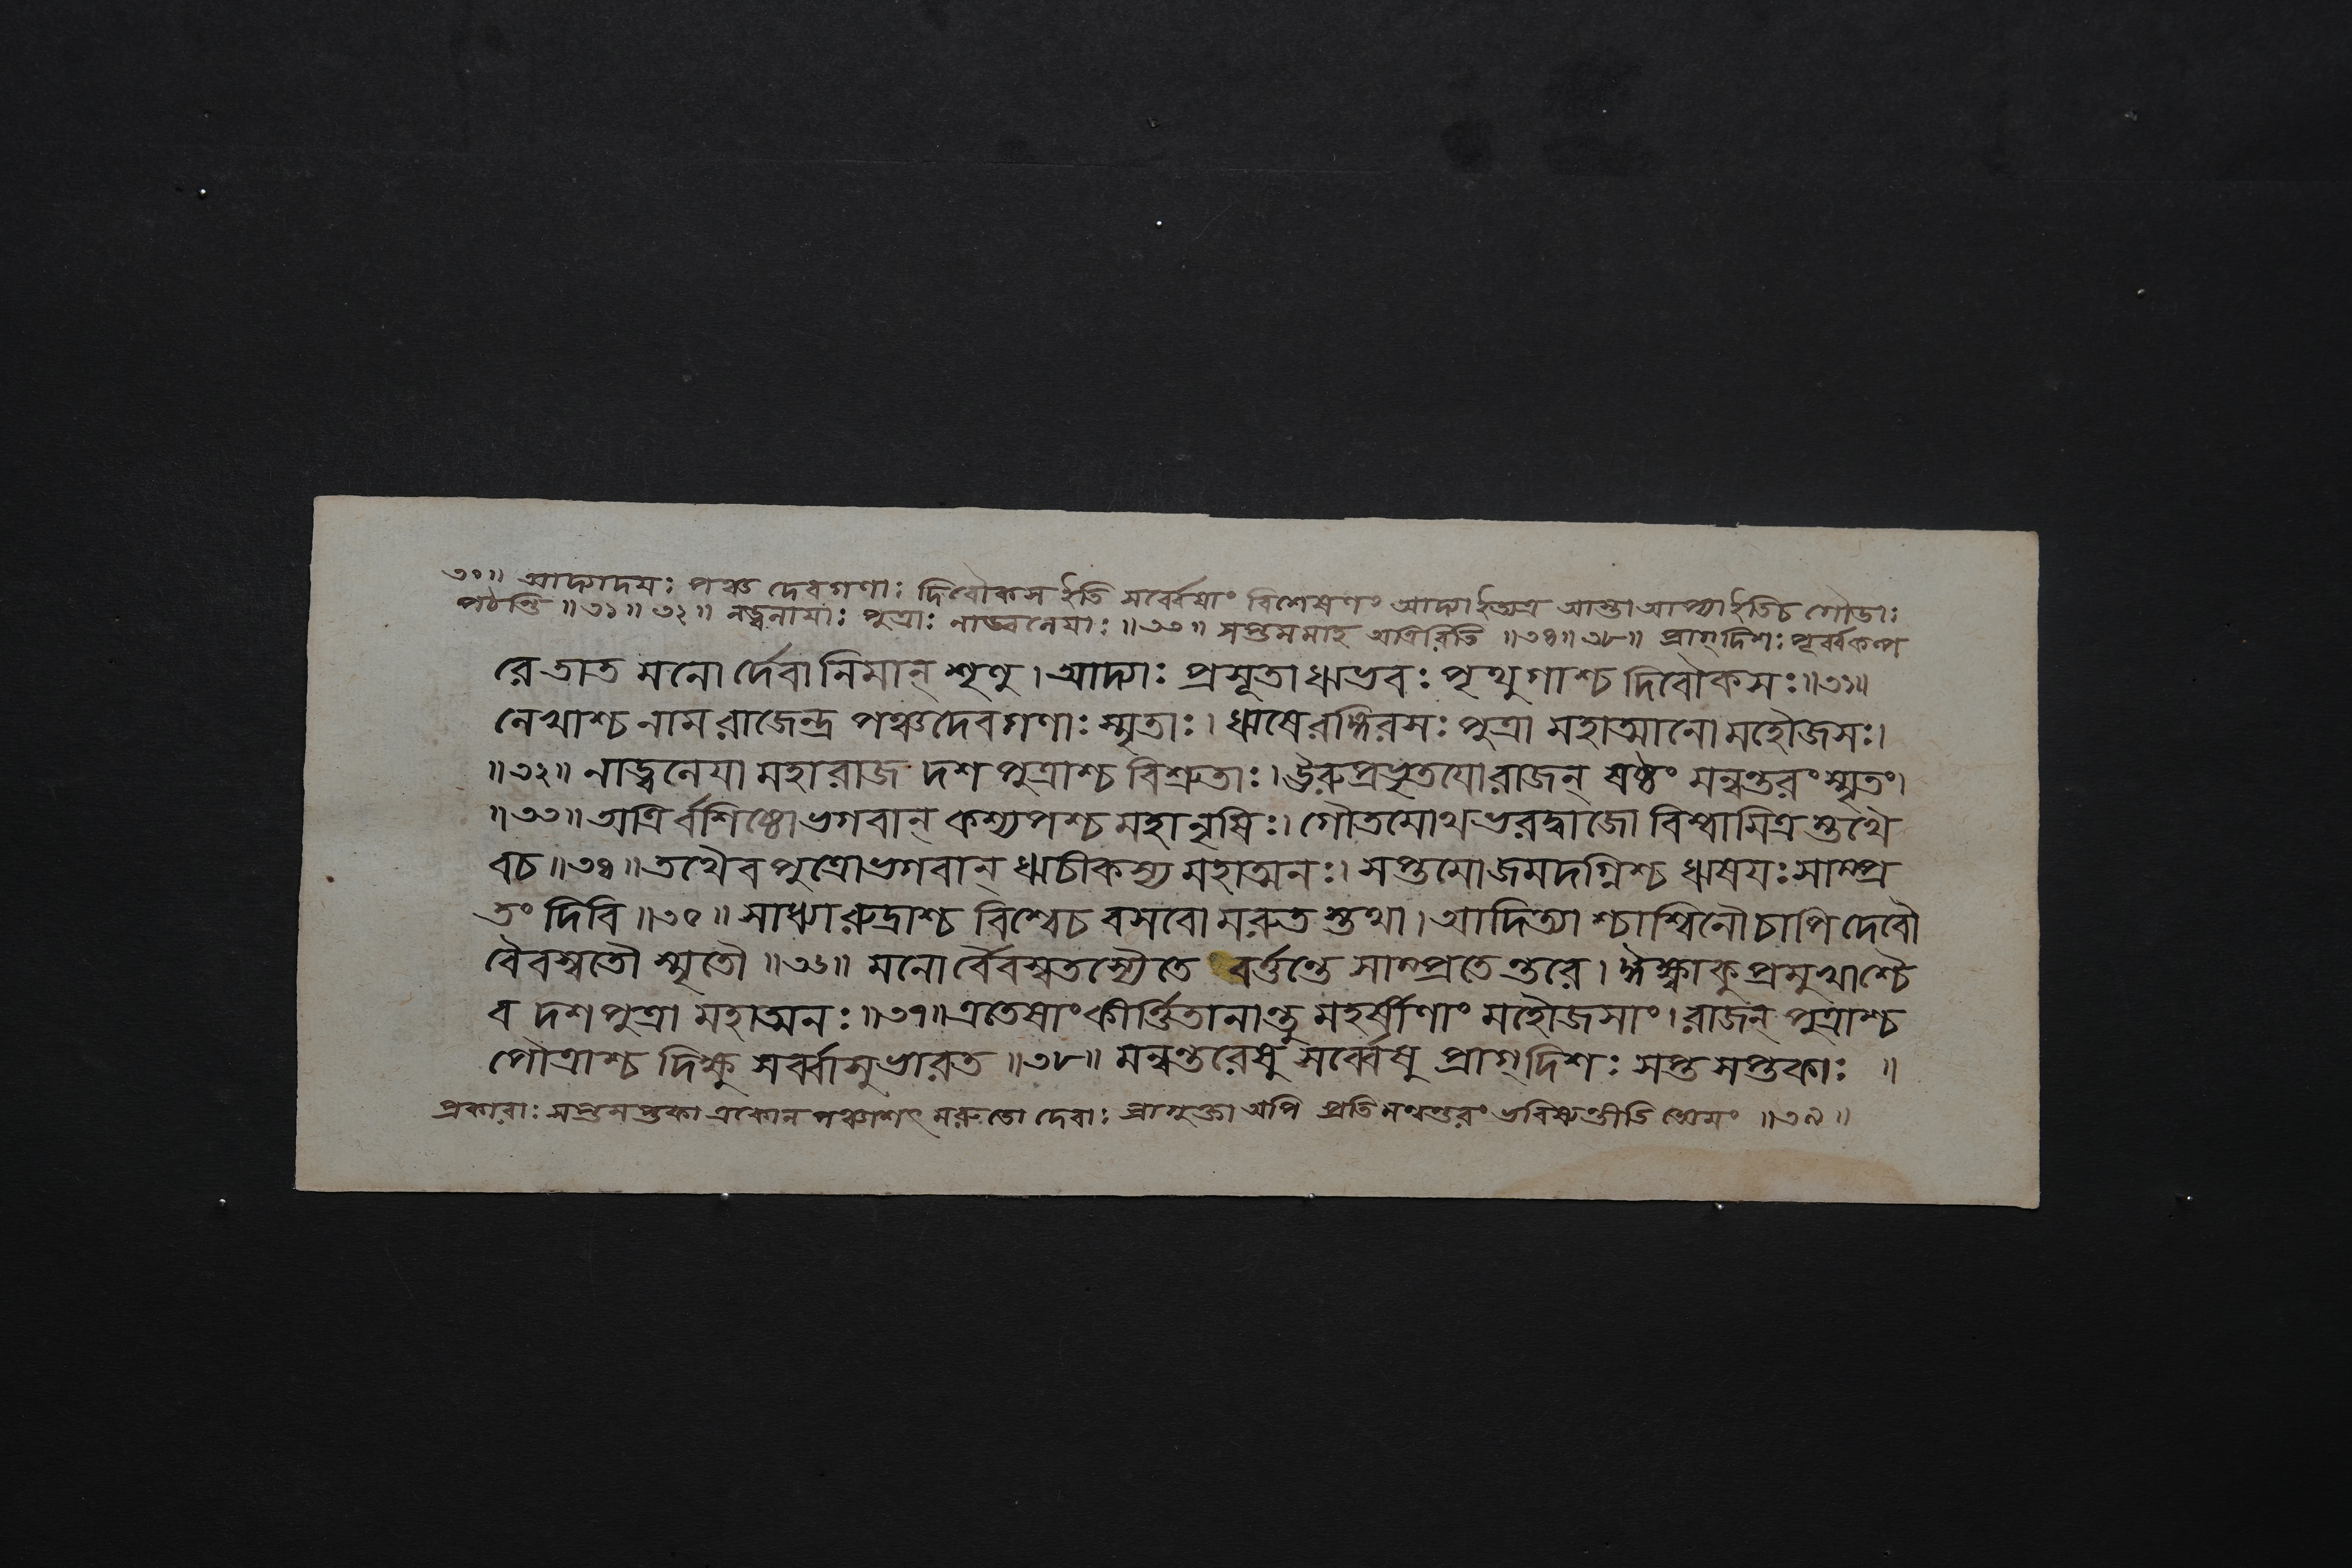 ৩০॥ আদ্যাদয়ঃ পঞ্চ দেবগণাঃ দিবৌকস ইতি সর্ব্বেষাং বিশেষণং আদ্যাইত্যত্র আস্তা আপ্যাইতিচ গৌডাঃ
পঠন্তি ॥৩১॥ ৩২॥ নড্বনায়াঃ পুত্রাঃ নাড্বনেয়াঃ ॥৩৩॥ সপ্তমমাহ অত্রিরিতি ॥৩৪॥৩৮॥ প্রাগ্দিশঃ পূর্ব্বকল্প
রে তাত মনো র্দেবানিমান্ শৃণু। আদ্যাঃ প্রসূতা ঋভবঃ পৃথুগাশ্চ দিবৌকসঃ॥৩১॥
লেখাশ্চ নাম রাজেন্দ্র পঞ্চদেবগণাঃ স্মৃতাঃ। ঋষেরঙ্গিরসঃ পুত্রা মহাত্মানো মহৌজসঃ।
॥৩২॥ নাড্বনেযা মহারাজ দশ পুত্রাশ্চ বিশ্রুতাঃ। ঊরুপ্রভৃতযোরাজন্ ষষ্ঠং মন্বন্তরং স্মৃতং।
॥৩৩॥ অত্রির্বশিষ্ঠোভগবান্ কশ্যপশ্চ মহানৃষিঃ। গৌতমোথ ভরদ্বাজো বিশ্বামিত্র স্তথৈ
বচ॥৩৪॥ তথৈব পুত্রোভগবান্ ঋচীকস্য মহাত্মনঃ। সপ্তমোজমদগ্নিশ্চ ঋষযঃ সাম্প্র
তং দিবি॥৩৫॥ সাধ্যারুদ্রাশ্চ বিশ্বেচ বসবো মরুত স্তথা। আদিত্যা শ্চাশ্বিনৌ চাপি দেবৌ
বৈবস্বতৌ স্মৃতৌ॥৩৬॥ মনোর্বৈবস্বতস্যৈতে বর্ত্তন্তে সাম্প্রতেন্তরে। ইক্ষ্বাকুপ্রমুখাশ্চৈ
ব দশপুত্রা মহাত্মনঃ॥৩৭॥ এতেষাং কীর্ত্তিতানান্তু মহর্ষীণাং মহৌজসাং। রাজন্ পুত্রাশ্চ
পৌত্রাশ্চ দিক্ষু সর্ব্বাসুভারত॥৩৮॥ মন্বন্তরেষু সর্ব্বেষু প্রাগ্দিশঃ সপ্ত সপ্তকাঃ॥
প্রকারাঃ সপ্তসপ্তকা একোন পঞ্চাশৎ মরুতো দেবাঃ প্রাগুক্তা অপি প্রতিমন্বন্তরং ভবিষ্যন্তীতি জ্ঞেয়ং ॥৩৯॥